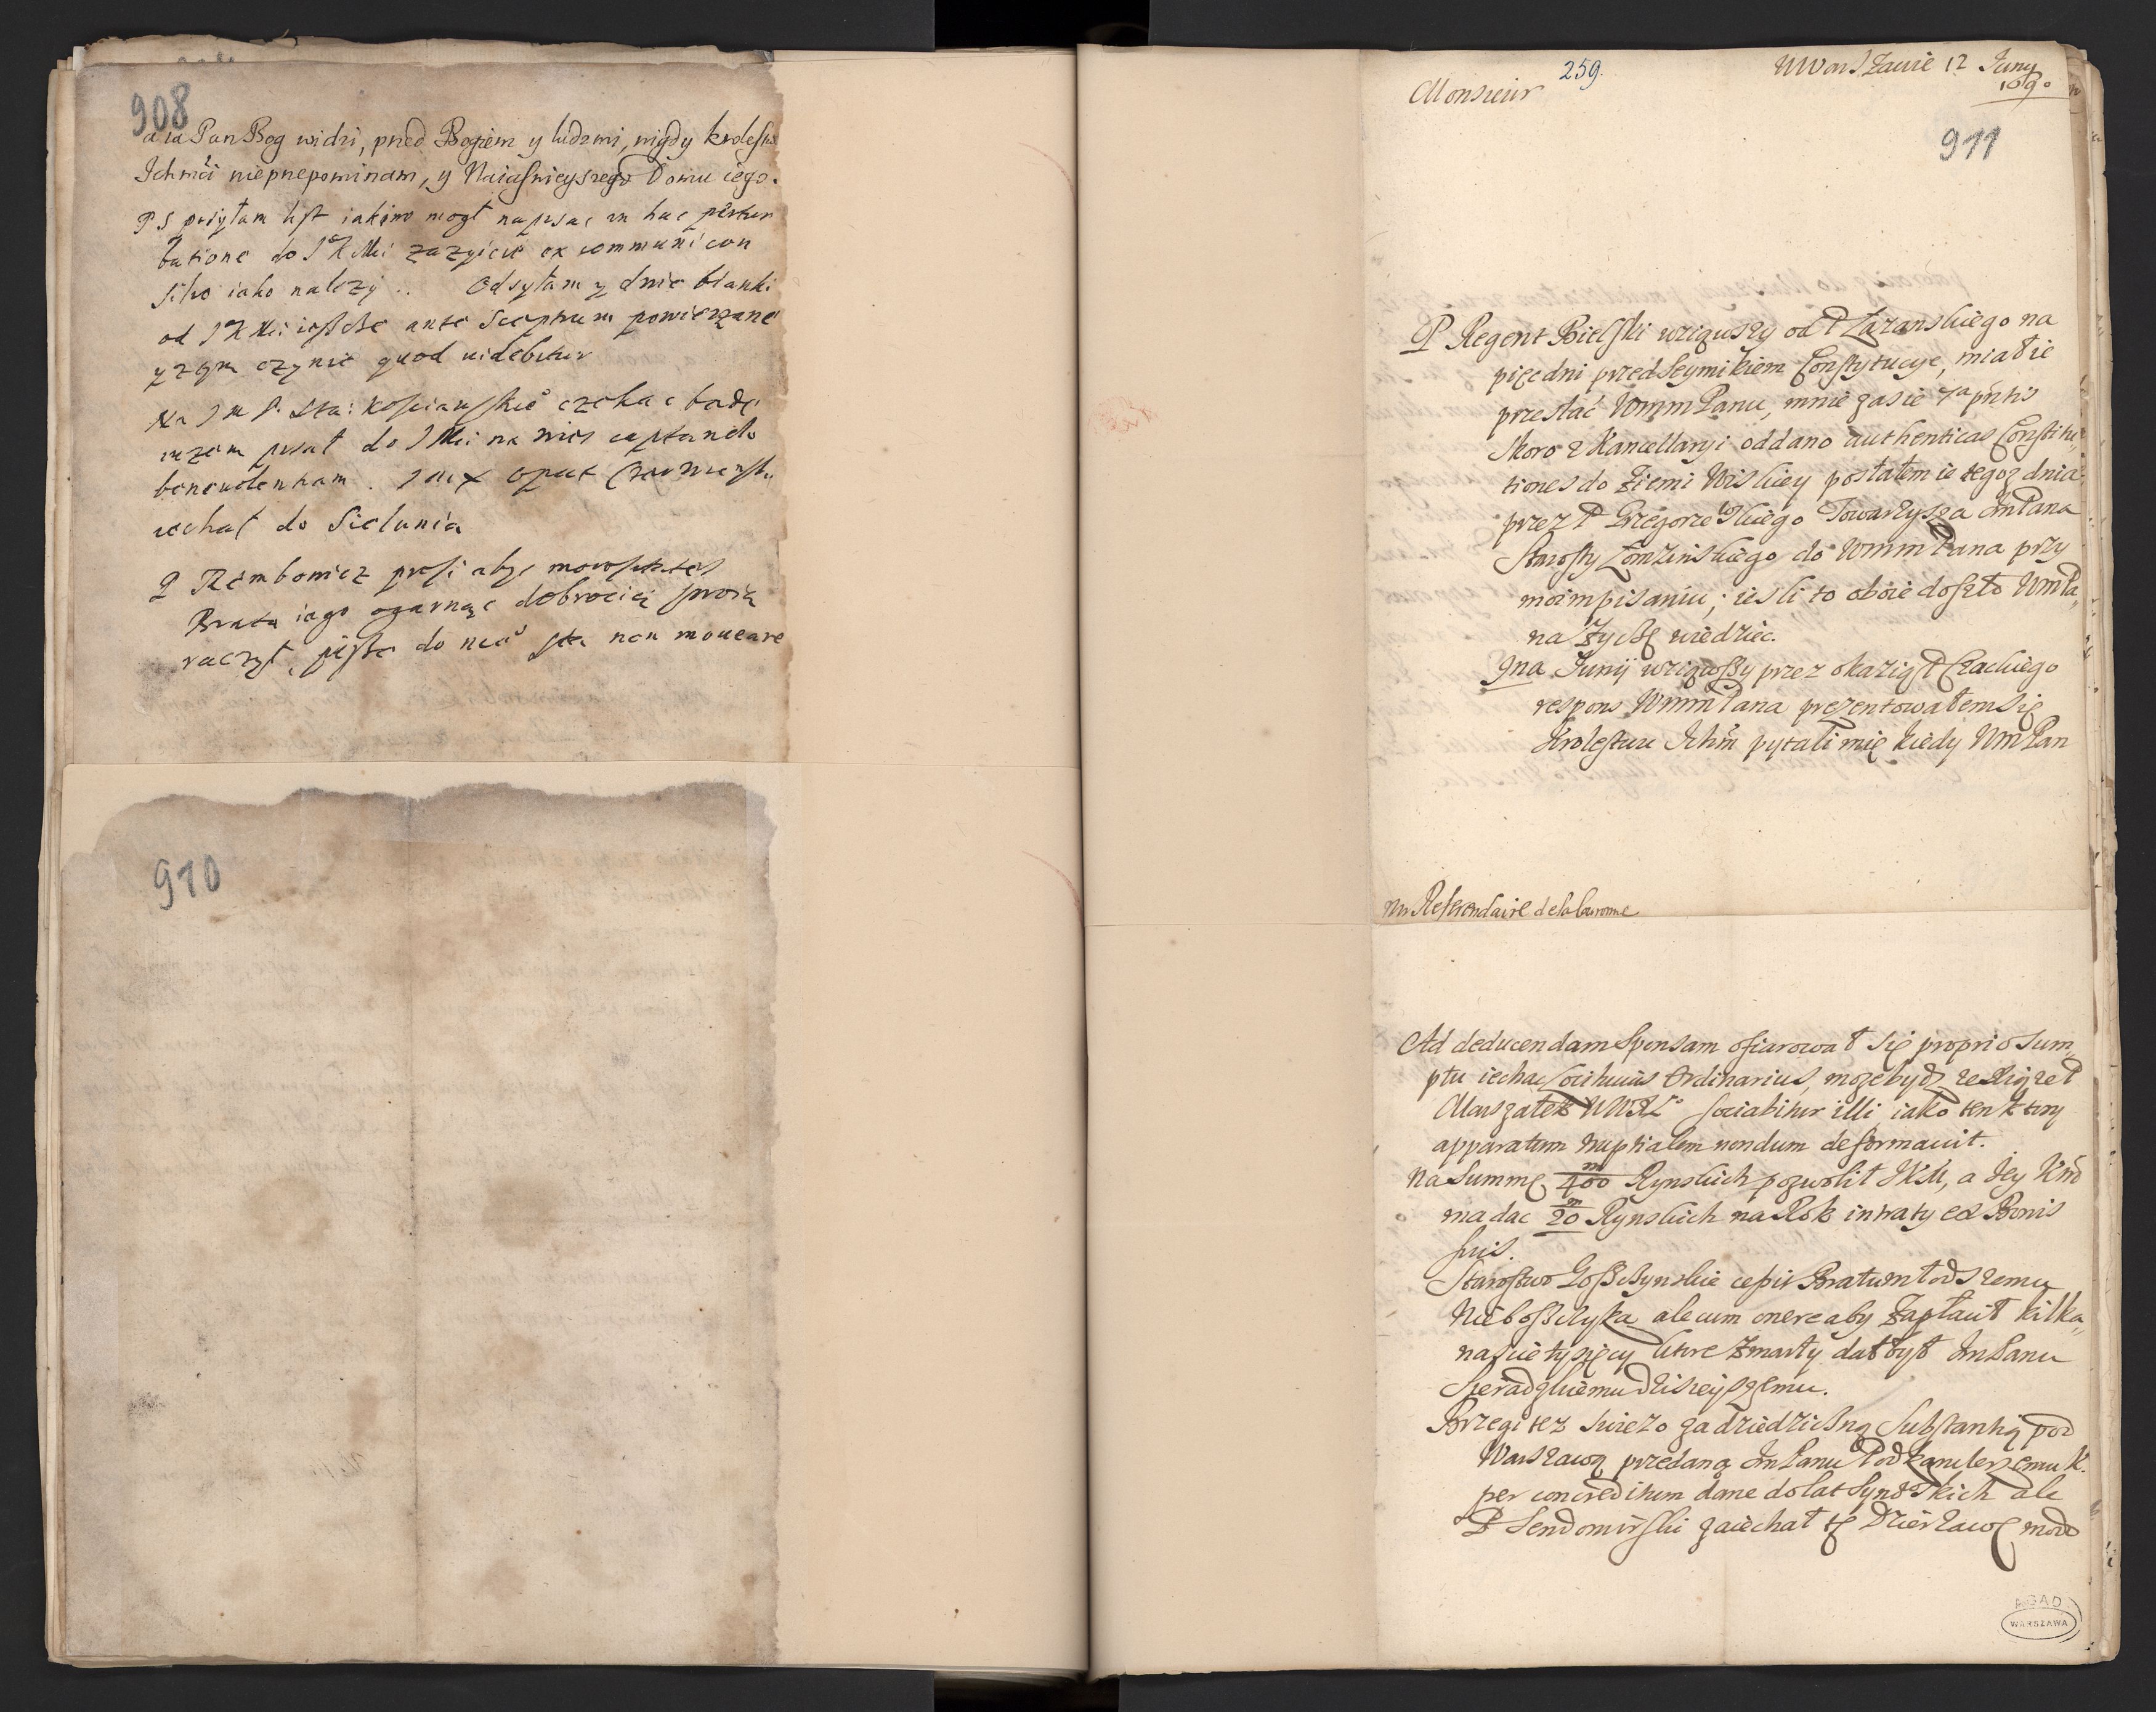 908
a ia Pan Bog widzi, pned Bogiem y ludzmi, nigdy krolestw
Ichmći niepnepominam, y Naiasnieyszego Domu iego.
PS posyłam list iakom mogł napisac in hac pertur
batione do JKMći zazyicie ex communi con
silio iako nalezy .. Odsyłam y dwie blanki
od JKMći ieszcze ante Sceptrum powierzane
y z tym czynic quod uidebitur
Na JMP. Sta: Kosćianskie czekac będę
pisał do JMći na captando
beneuolentiam. JMX Opat Czerwinski
iechał do Sielunia
P Rembowicz prosi abys
Brata iego ogarnąc dobrocią swoią
raczył, pisze do non moueare
910
259.
W Warszawie 12 Juny
1690
Monsieur
911
P Regent Bielski wziąwszy od P Łazanskiego na
pięc dni przed Seymikiem Constytucye, miał ie
przesłać WmmPanu, mnie zasie 7a pntis
skoro z Kancellaryi oddano authenticas Constitu„
tiones do Ziemi Wiskiey posłałem ie tegoz dnia
przez P Grzegorzewskiego Towarzysza JmPana
Starosty Łomzinskiego do WmmPana przy
moim pisaniu; iesli to oboie doszło WmPa„
na zyczę wiedziec.
9na Junij wziąwszy przez okazią P Czackiego
respons WmmPana prezentowałem się
Krolestwu Ichm pytali mię kiedy WmPan
Mr Referendaire de la Couronne
Ad deducendam Sponsam ofiarował się proprio sum„
ptu iechac Loci huius Ordinarius, moze bydz ze Xiąze P
Marszałek WWXL° sociabitur illi iako ten ktory
apparatum nuptialem nondum deformauit.
Na Summę 400 m Rynskich pozwolił JKM, a Jey Kmć
ma dac 20 m Rynskich na Rok intraty ex Bonis
suis.
Starostwo Goszczynskie cepit Bratu młodszemu
Nieboszczyka ale cum onere aby zapłacił kilka„
nascie tysięcy ktore zmarły dał był JmPanu
Sieradzkiemu dzisieyszemu.
Brzegi tez swiezo za dziedziczną Substantią pod
Warszawą przedaną JmPanu Podkanclerzemu K.
per concreditum dane do lat Synowskich ale
P Sendomirski zaiechał tę Dzierzawę modo
AGAD
WARSZAWA